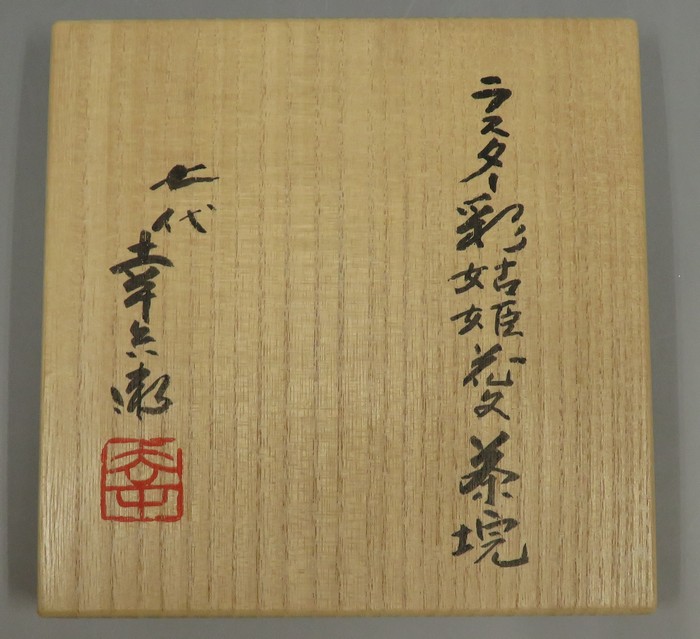 ラスター彩姑姫花文茶垸
七代
幸兵衛
幸